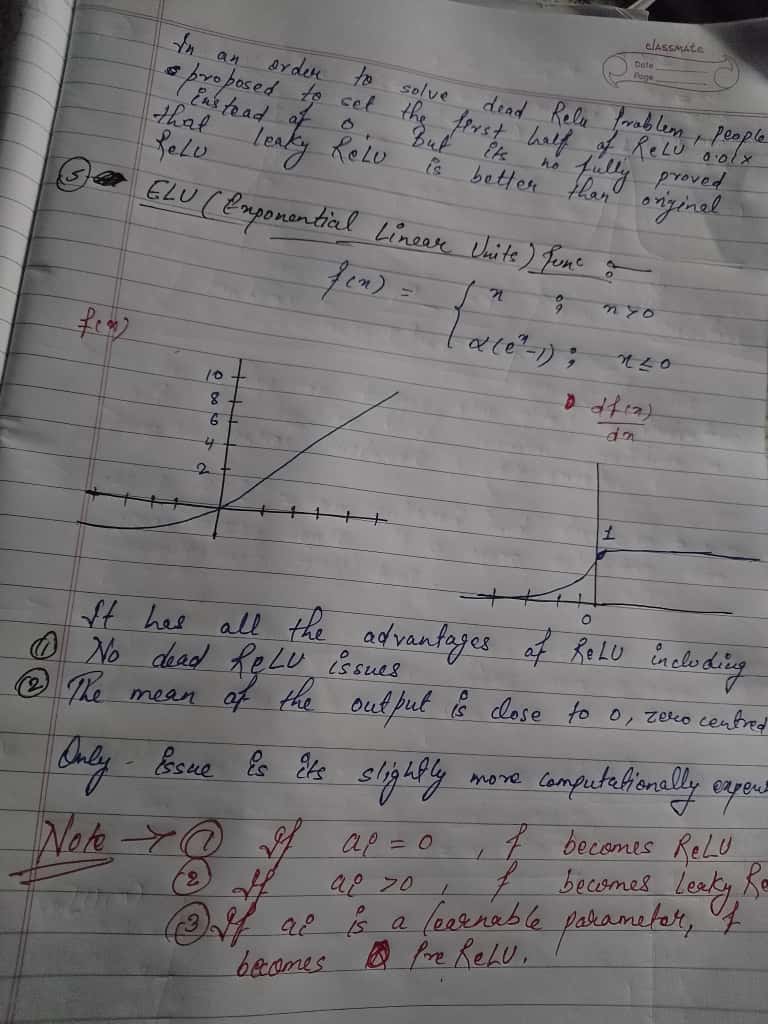 classmate
Date
Page
In an order to solve dead Relu Problem, people
proposed to set the first half of ReLU 0.01x
instead of 0. But its no fully proved
that leaky ReLU is better than original
ReLU
5 ELU (Exponential Linear Units) func :-
f(x) = { x ; x>0
α(e^x-1) ; x≤0
f(x)
df(x)
dx
10
8
6
4
2
1
0
It has all the advantages of ReLU including
① No dead ReLU issues
② The mean of the output is close to 0, zero centred
Only issue is its slightly more computationally expen
Note → ① If ai = 0 , f becomes ReLU
② If ai >0 , f becomes Leaky Re
③ If ai is a learnable parameter, f
becomes PreReLU.